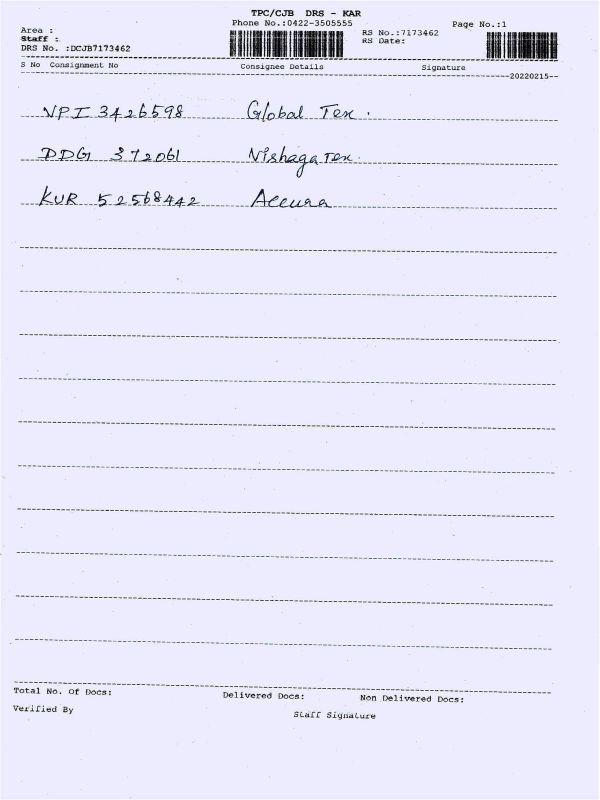 TPC/CJB DRS - KAR
Phone No.:0422-3505555 Page No.:1
Area :
Staff :
DRS No. :DCJB7173462
RS No.:7173462
RS Date:
S No Consignment No Consignee Details Signature
20220215--
VPI 3426598 Global Tex.
DDG 372061 Nishaga Tex.
KUR 52568442 Accura
Total No. Of Docs: Delivered Docs: Non Delivered Docs:
Verified By Staff Signature